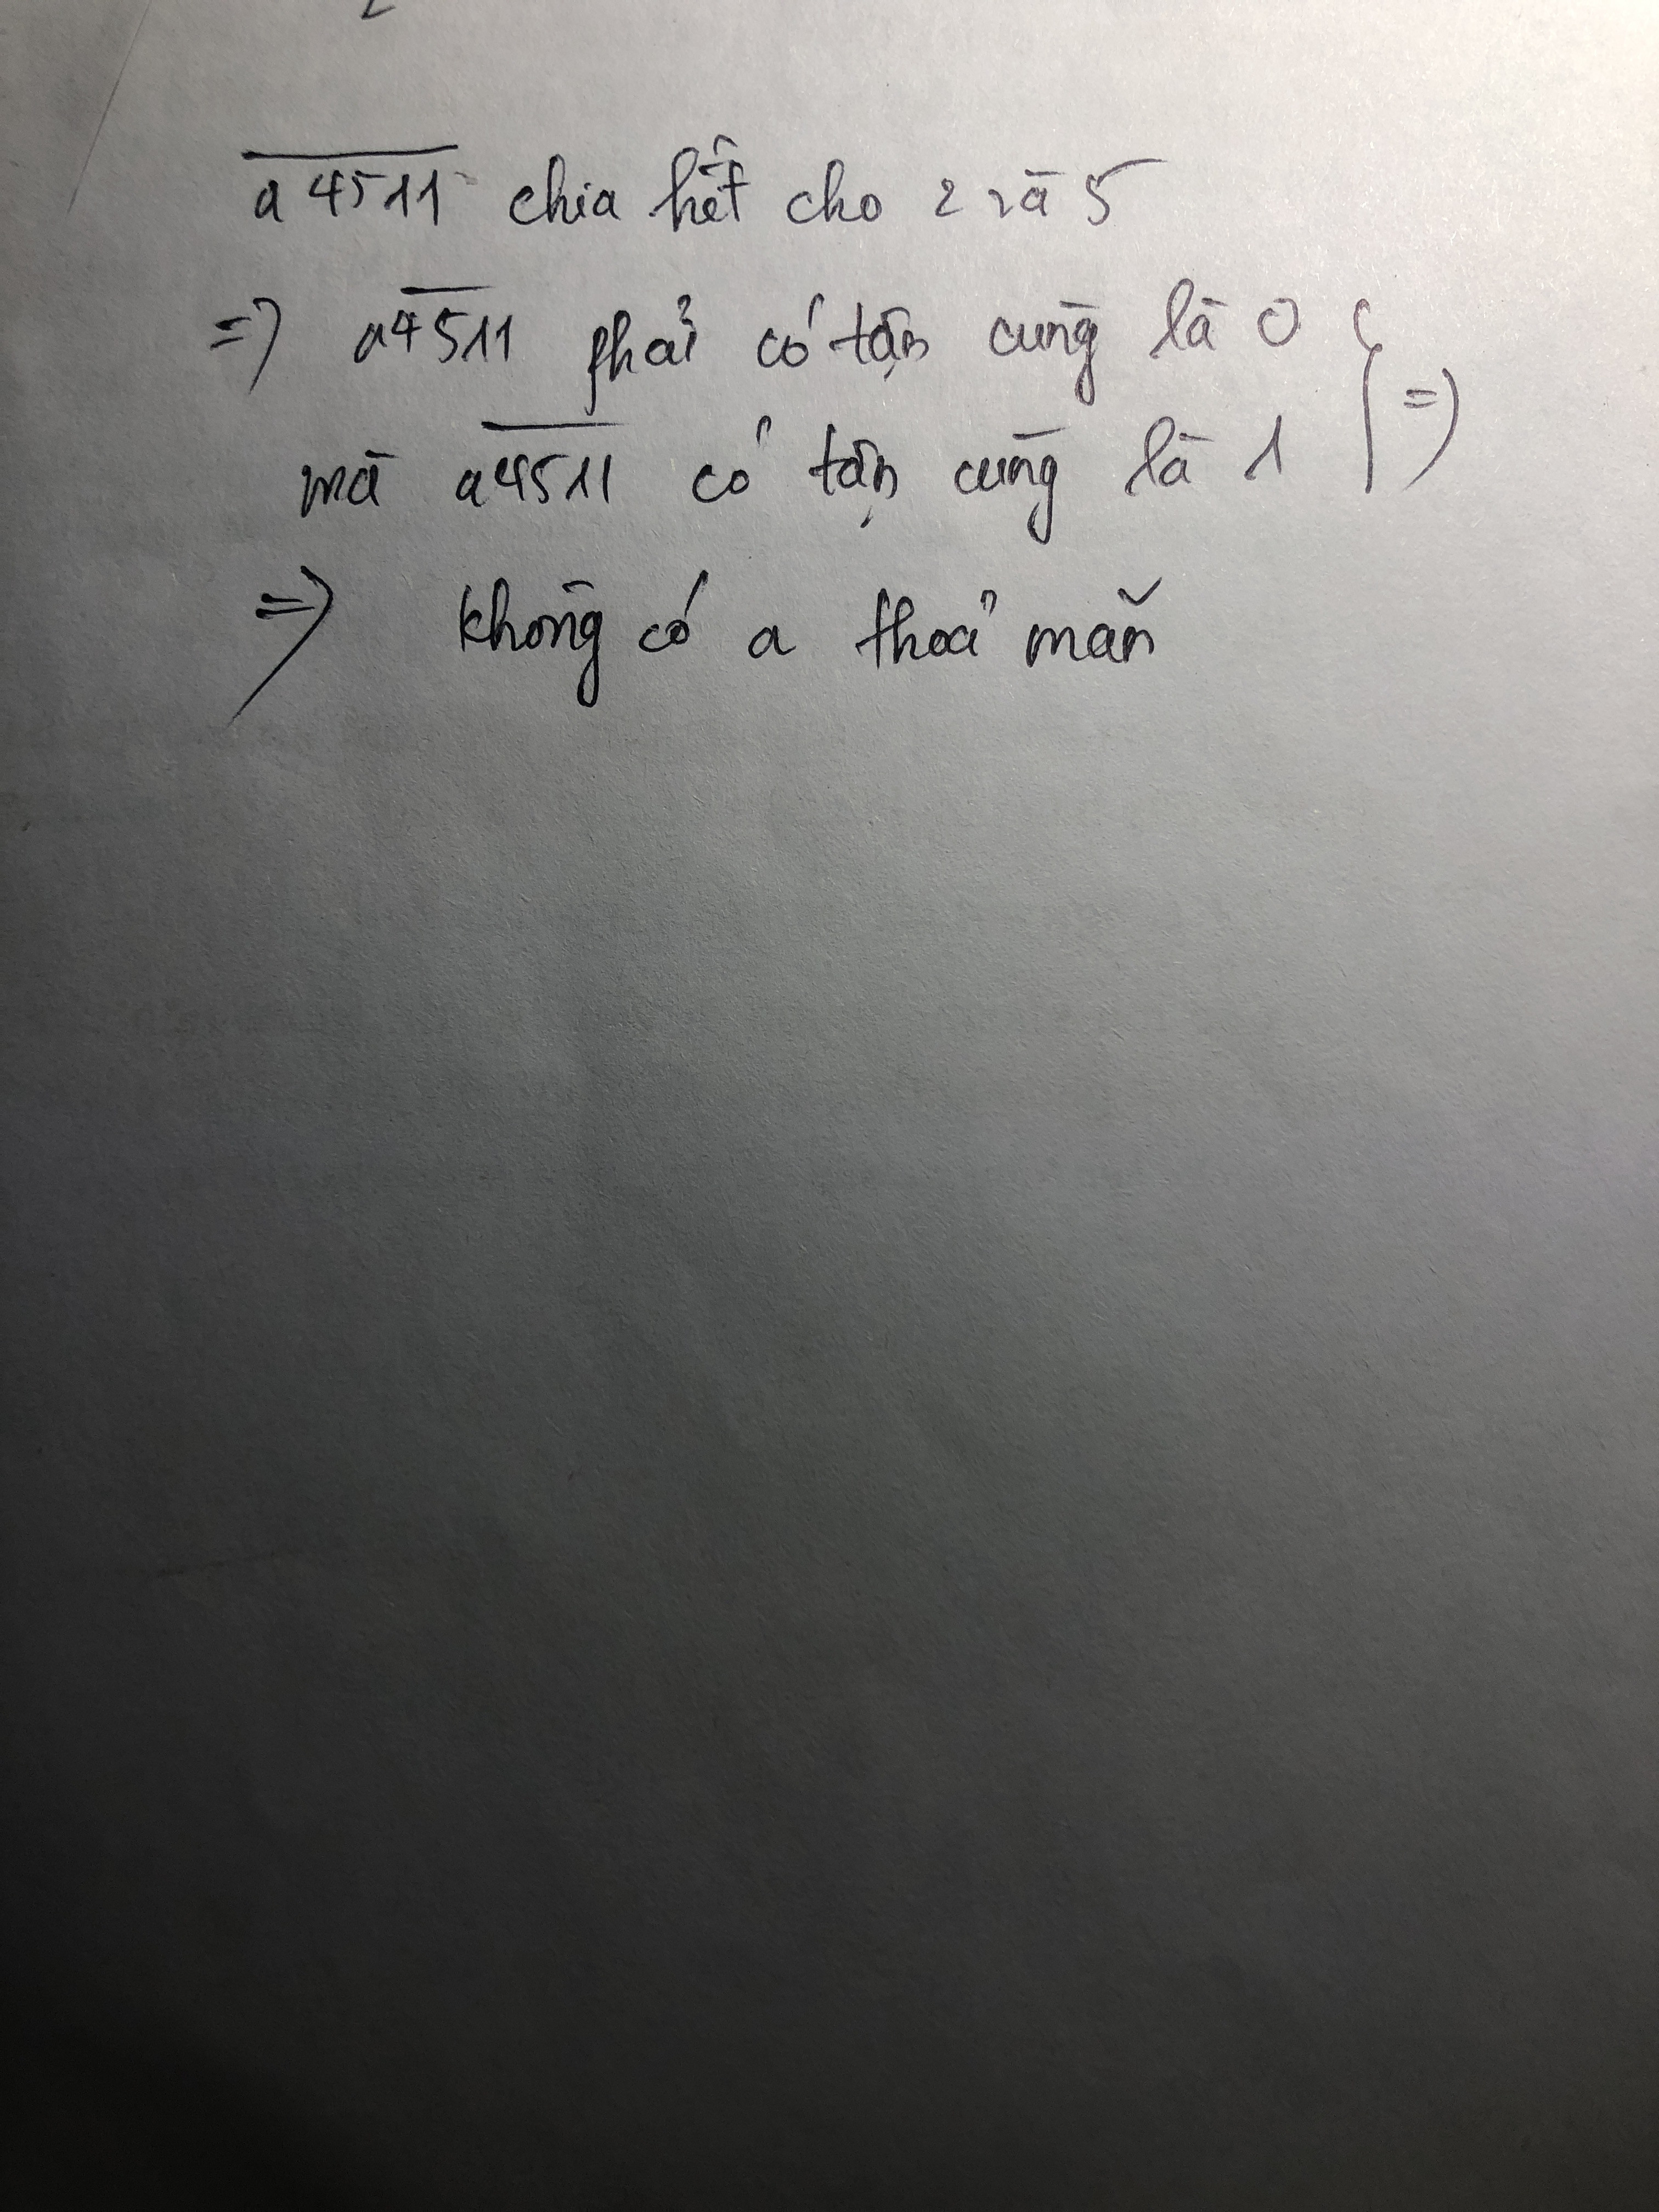 a4511 chia hết cho 2 và 5
=> a4511 phải có tận cùng là 0
mà a4511 có tận cùng là 1 } =>
=> không có a thoả mãn